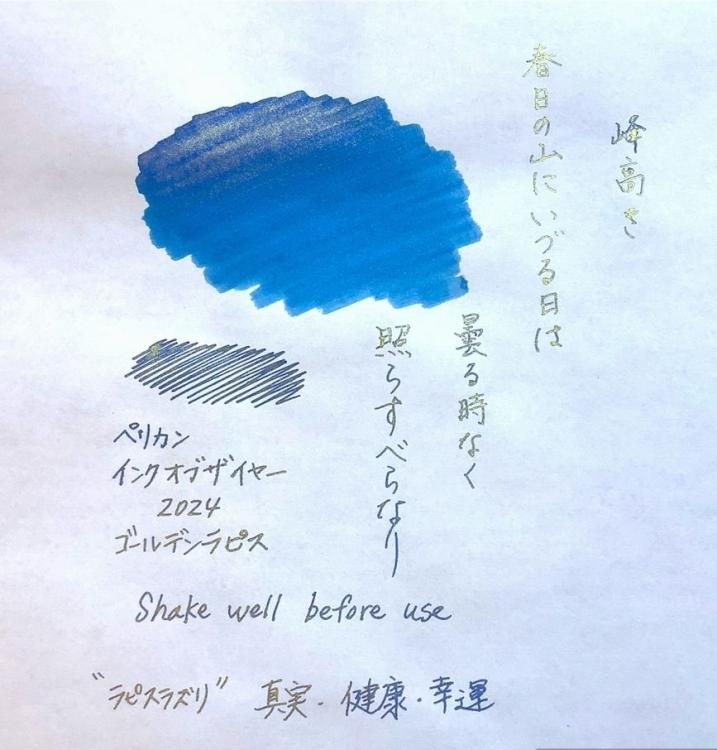 峰高き
春日の山にいづる日は
曇る時なく
照らすべらなり
ペリカン
インクオブザイヤー
2024
ゴールデンラピス
Shake well before use
"ラピスラズリ" 真実・健康・幸運